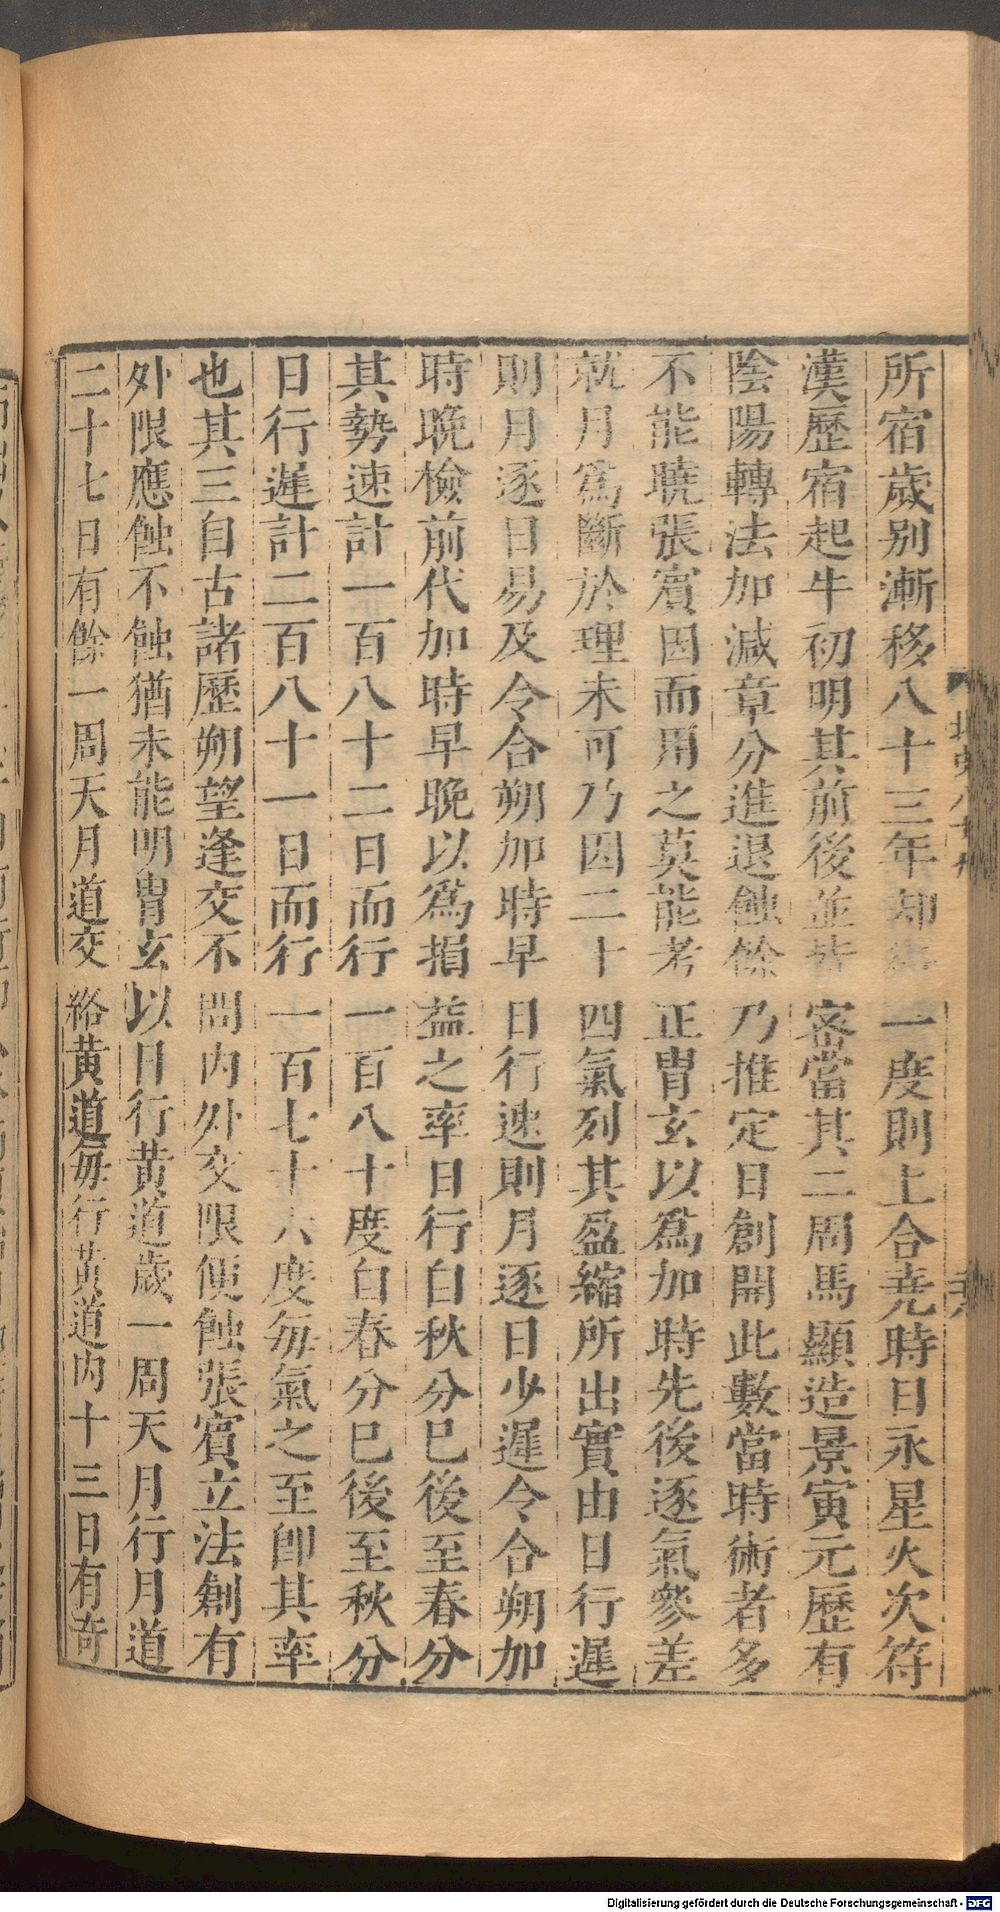 所宿歲别漸移八十三年却 一度則上合堯時日永星火次符
漢歷宿起牛初明其前後並皆密當其二周馬顯造景寅元歷有
陰陽轉法加減章分進退蝕餘乃推定日創開此數當時術者多
不能曉張賓因而用之莫能考正胄玄以爲加時先後逐氣參差
就月爲斷於理未可乃因二十四氣列其盈縮所出實由日行遲
則月逐日易及令合朔加時早日行速則月逐日少遲令合朔加
時晚檢前代加時早晚以爲損益之率日行自秋分巳後至春分
其勢速計一百八十二日而行一百八十度自春分巳後至秋分
日行遲計二百八十一日而行一百七十六度每氣之至卽其率
也其三自古諸歷朔望逢交不問内外交限便蝕張賓立法創有
外限應蝕不蝕猶未能明胄玄以日行黄道歲一周天月行月道
二十七日有餘一周天月道交絡黄道每行黄道内十三日有奇
Digitalisierung gefördert durch die Deutsche Forschungsgemeinschaft - DFG